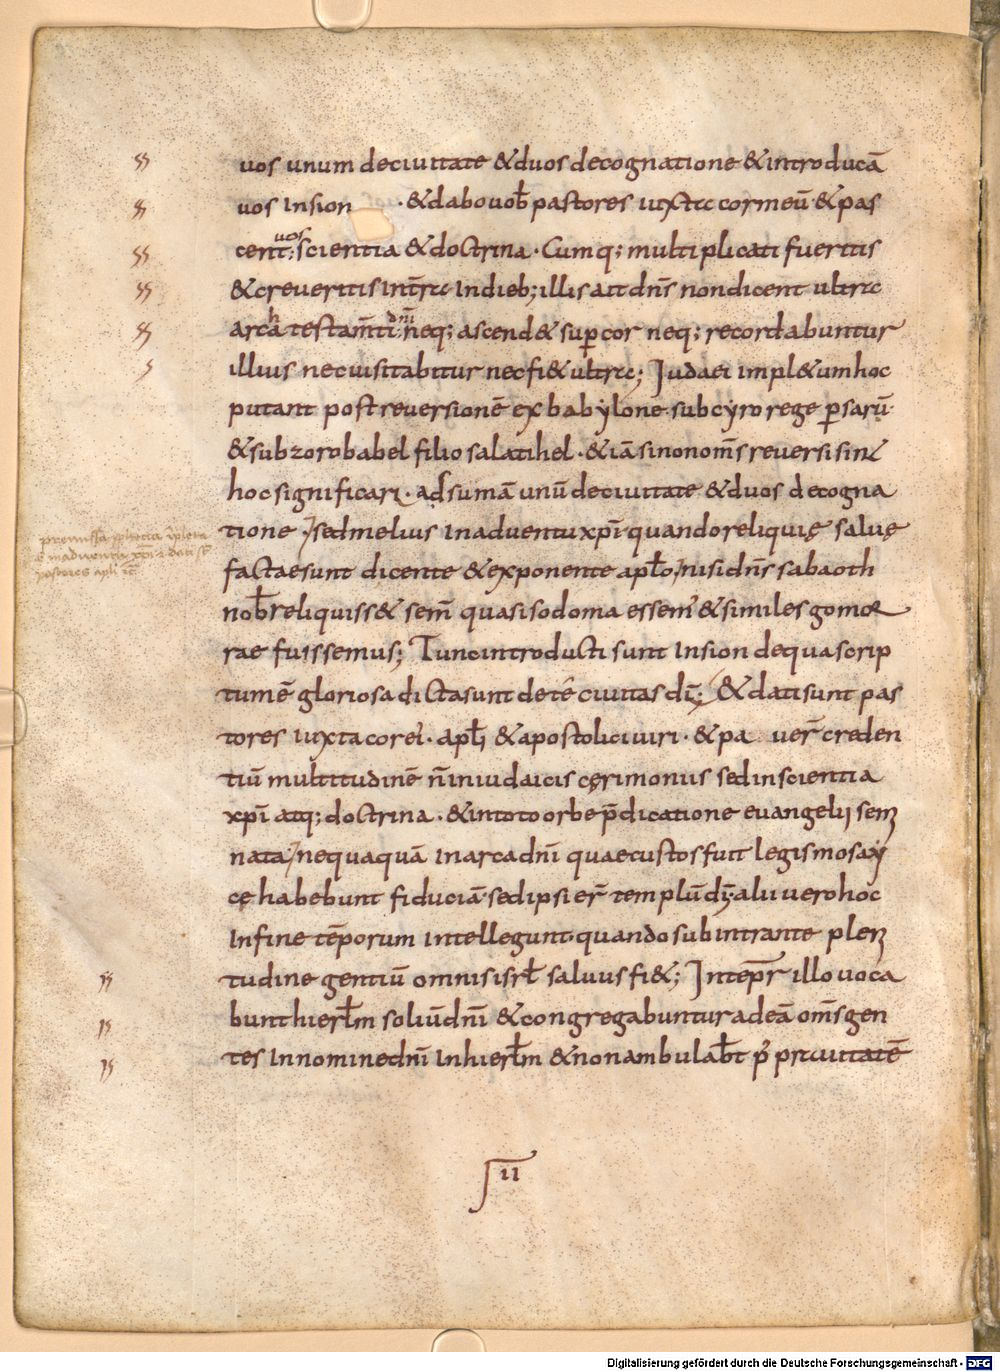 uos unum deciuitate &duos decognatione &introducā
uos insion · &dabo uob̄ pastores iuxta cormeū &pas
cent: uos scientia &doctrina · Cumq; multiplicati fueritis
&creueritis interra indieb; illis ait dn̄s nondicent ultra
arcah testam̄ti dn̄i neq; ascend& sup cor neq; recordabuntur
illius necuisitabitur necfi& ultra; Iudaei impl&umhoc
putant postreuersionē exbabylone subcyro rege psarū
&subzorobabel filio salatihel · &iā sinonom̄s reuersi sint
hoc significari · adsumā unū deciuitate &duos decogna
tione / sedmelius inaduentu xp̄i quandoreliquię saluę
factaesunt dicente &exponente apl̄o / nisi dn̄s sabaoth
nob̄ reliquiss& sem̄ quasi sodoma essem' &similes gomor
rae fuissemus; Tuncintroducti sunt insion dequa scrip
tumē gloriosa dictasunt dete ciuitas dī; &dati sunt pas
tores iuxta cor ei · apl̄i &apostolici uiri · &pa uer̄ creden
tiū multitudinē n̄ iniudaicis cęrimoniis sed inscientia
xp̄i atq; doctrina · &intoto orbe p̄dicatione euangelij semi
nata / nequaquā inarca dn̄i quaecustos fuit legis mosay
cę habebunt fiduciā · sed ipsi er̄ templū dī · alii uero hoc
infine tēporum intellegunt · quando subintrante pleni
tudine gentiū omnis isrl̄ saluus fi&; Intēpr̄ illo uoca
bunt hierl̄m soliū dn̄i &congregabuntur adeā om̄s gen
tes innomine dn̄i inhierl̄m &nonambulab̄t p' prauitatē
premissa pphetia īpleta
ē inaduentu xp̄i & dati st̄
pastores apl̄i
II
Digitalisierung gefördert durch die Deutsche Forschungsgemeinschaft - DFG